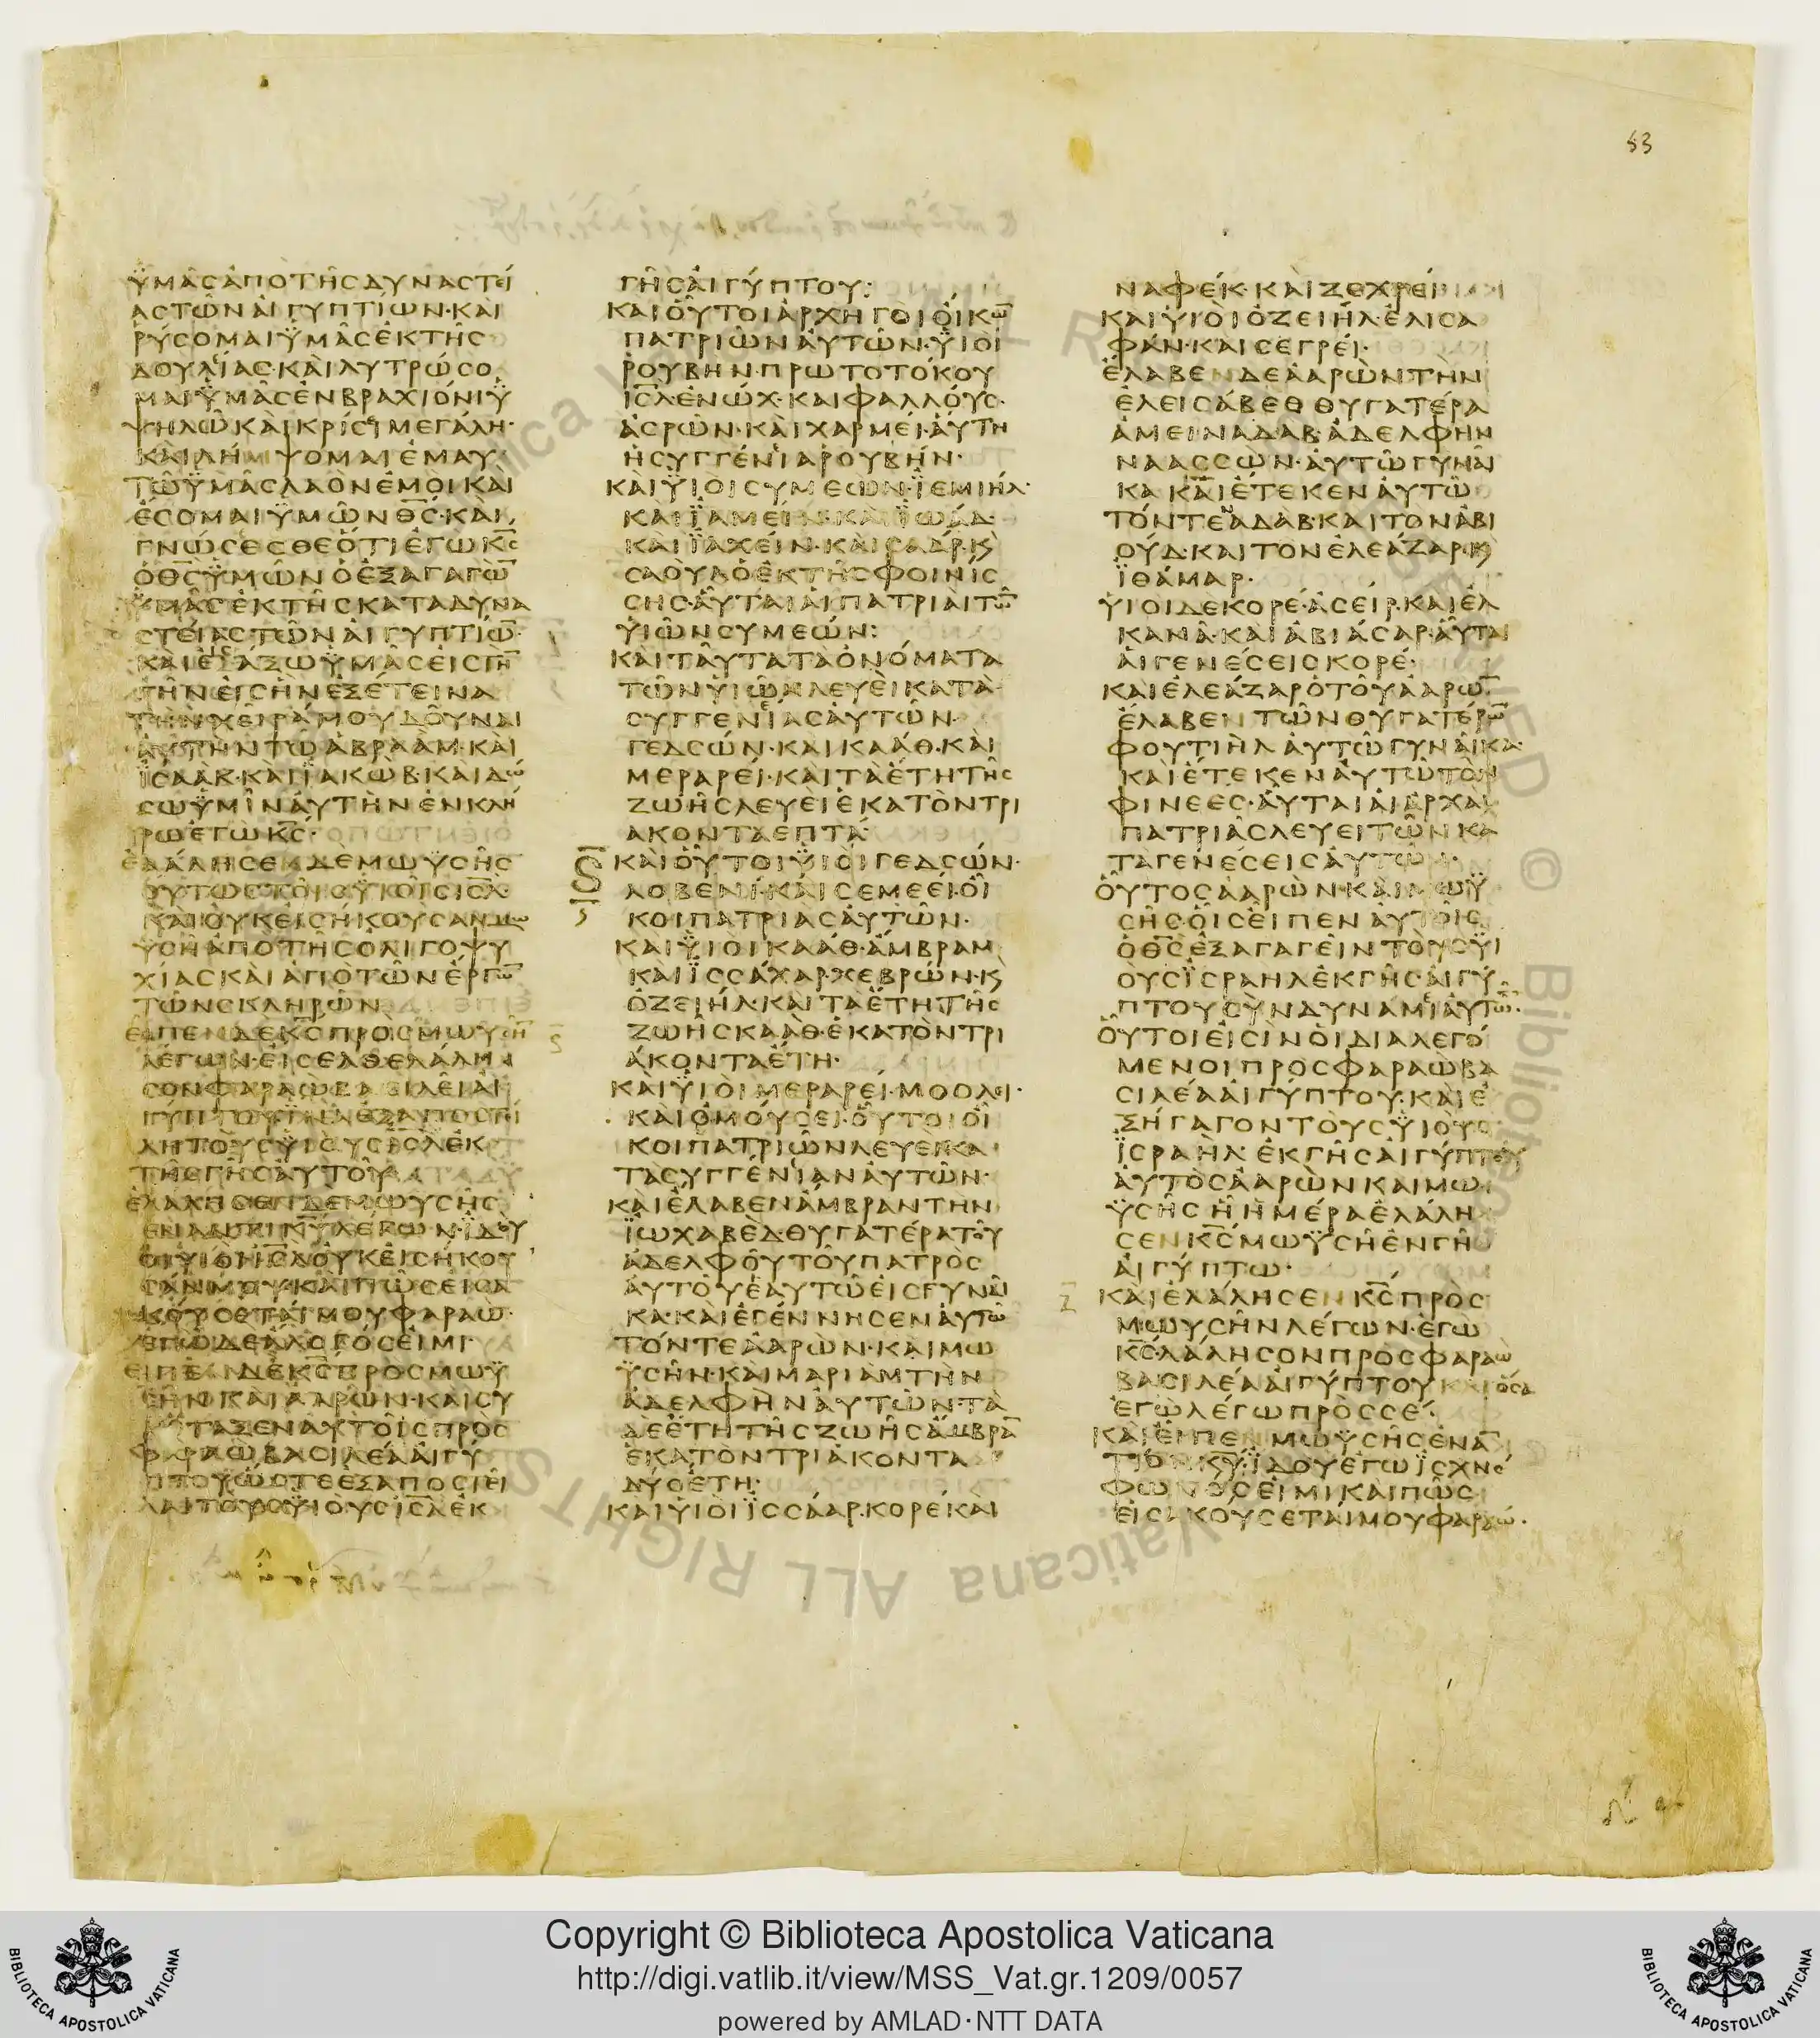 53
ὙΜΑ͂ϹἈΠῸΤΗ͂ϹΔΥΝΑϹΤΕΊ
ΑϹΤΩ͂ΝΑἸΓΥΠΤΊΩΝ·ΚΑῚ
ῬΎϹΟΜΑΙΫΜΑ͂ϹἘΚΤΗ͂Ϲ
ΔΟΥΛΊΑϹ·ΚΑῚΛΥΤΡΏϹΟ
ΜΑΙΫΜΑ͂ϹἘΝΒΡΑΧΊΟΝΙΫ
ΨΗΛΩ͂ΚΑῚΚΡΊϹΕΙΜΕΓΆΛΗ·
ΚΑῚΛΉΜΨΟΜΑΙἘΜΑΥ
ΤΩ͂ΫΜΑ͂ϹΛΑῸΝἘΜΟΙΚΑῚ
ἜϹΟΜΑΙΫΜΩ͂ΝΘ̅Ϲ̅·ΚΑῚ
ΓΝΏϹΕϹΘΕὍΤΙἘΓΩΚ̅Ϲ̅
ὉΘ̅Ϲ̅ΫΜΩ͂ΝὉἘΞΑΓΑΓΩ̅
ΫΜΑ͂ϹἘΚΤΗ͂ϹΚΑΤΑΔΥΝΑ
ϹΤΕΊΑϹΤΩ͂ΝΑἸΓΥΠΤΊΩ̅·
ΚΑῚΕἸϹΆΞΩΫΜΑ͂ϹΕἸϹΓΗ̅
ΤῊΝΕἸϹῊΝἘΞΈΤΕΙΝΑ
ΤῊΝΧΕΙ͂ΡΆΜΟΥΔΟΥ͂ΝΑΙ
ΑΥ̓ΤῊΝΤΩ͂ἈΒΡΑᾺΜ·ΚΑῚ
ΪϹΑᾺΚ·ΚΑῚΪΑΚῺΒ·ΚΑΙΔΏ
ϹΩΫΜΙ͂ΝΑΥ̓ΤῊΝἘΝΚΛΉ
ΡΩἘΓΩΚ̅Ϲ̅·
ἘΛΆΛΗϹΕΝΔῈΜΩΫϹΗ͂Ϲ
ΟὝΤΩϹΤΟΙ͂ϹΥΪΟΙ͂ϹΙ̅Ϲ̅Λ̅·
ΚΑῚΟΥ̓ΚΕἸϹΉΚΟΥϹΑΝΜΩ
ΥϹΗ͂ἈΠῸΤΗ͂ϹὈΛΙΓΟΨΥ
ΧΊΑϹΚΑῚἈΠῸΤΩ͂ΝἜΡΓΩ̅
ΤΩ͂ΝϹΚΛΗΡΩ͂Ν
ΕἾΠΕΝΔΕΚ̅Ϲ̅ΠΡῸϹΜΩΥϹΗ̅
ΛΈΓΩΝ·ΕἼϹΕΛΘΕΛΆΛΗ
ϹΟΝΦΑΡΑῺΒΑϹΙΛΕΙ͂ΑἸ
ΓΎΠΤΟΥΪΝΑἘΞΑΠΟϹΤΕΊ
ΛΗΤΟῪϹΥΪΟῪϹΙ̅Ϲ̅Λ̅ἘΚ
ΤΗ͂ϹΓΗ͂ϹΑΥ̓ΤΟΥ͂
ἘΛΆΛΗϹΕΝΔΕΜΩΥϹΗ͂Ϲ
ἜΝΑΝΤΙΚ̅Υ̅ΛΈΓΩΝ·ΪΔΟῪ
ΟΙΥΪΟῚΙ̅Ϲ̅Λ̅ΟΥ̓ΚΕἸϹΉΚΟΥ
ϹΆΝΜΟΥ·ΚΑῚΠΩ͂ϹΕἸϹΑ
ΚΟΎϹΕΤΑΊΜΟΥΦΑΡΑΏ·
ἘΓῺΔΕἌΛΟΓΌϹΕἸΜΙ·
ΕΙΠΕΝΔΕΚ̅Ϲ̅ΠΡῸϹΜΩΫ
ϹΗ͂ΝΚΑῚἈΑΡῺΝ·ΚΑῚϹΥ
ΝΈΤΑΞΕΝΑΥ̓ΤΟΙ͂ϹΠΡῸϹ
ΦΑΡΑῺΒΑϹΙΛΈΑΑἸΓΎ
ΠΤΟΥὭϹΤΕἘΞΑΠΟϹΤΕΙ͂
ΛΑΙΤΟῪϹΫΙΟῪϹΙ̅Ϲ̅Λ̅ἘΚ
ΓΗ͂ϹΑἸΓΎΠΤΟΥ:
ΚΑῚΟὟΤΟΙἈΡΧΗΓΟῚΟἸΚΩ̅
ΠΑΤΡΙΩ͂ΝΑΥ̓ΤΩ͂Ν·ΫΙΟῚ
ῬΟΥΒΗΝ·ΠΡΩΤΟΤΌΚΟΥ
Ι̅Ϲ̅Λ̅·ἘΝΏΧ·ΚΑΙΦΑΛΛΟΎϹ·
ἈϹΡῺΝ·ΚΑῚΧΑΡΜΕΊ·ΑὝΤΗ
ἩϹΥΓΓΈΝΕΙΑΡΟΥΒΉΝ·
ΚΑΙΫΙΟΙϹΥΜΕῺΝ·ΪΕΜΙΉΛ·
ΚΑῚΪΑΜΕΊΝ·ΚΑῚΪΩΆΔ·
ΚΑῚΪΑΧΕΊΝ·ΚΑῚϹΑΆΡ·Ϗ
ϹΑΟῪΛὉἘΚΤΗ͂ϹΦΟΙΝΊϹ
ϹΗϹ·ΑὟΤΑΙΑἹΠΑΤΡΙΑῚΤΩ̅
ΥἹΩ͂ΝϹΥΜΕΏΝ:
ΚΑῚΤΑΥ͂ΤΑΤᾺὈΝΌΜΑΤΑ
ΤΩ͂ΝΥἹΩ͂ΝΛΕΥΕῚΚΑΤᾺ
ϹΥΓΓΕΝΕΊΑϹΑΥ̓ΤΩ͂Ν·
ΓΕΔϹΏΝ·ΚΑΙΚΑΆΘ·ΚΑῚ
ΜΕΡΑΡΕΊ·ΚΑΙΤᾺἜΤΗΤΗ͂Ϲ
ΖΩΗ͂ϹΛΕΥΕΙἙΚΑΤῸΝΤΡΙ
ΑΚΟΝΤΑΕΠΤΆ·
ΚΑῚΟὟΤΟΙΫΙΟῚΓΕΔϹΏΝ·
ΛΟΒΕΝΊ·ΚΑῚϹΕΜΕΕΊ·ΟἾ
ΚΟΙΠΑΤΡΙΑϹΑΥ̓ΤΩ͂Ν·
ΚΑῚΫΙΟῚΚΑΆΘ·ἌΜΒΡΑΜ
ΚΑῚΪϹϹΆΧΑΡ·ΧΕΒΡΏΝ·Ϗ
ὈΖΕΙΉΛ·ΚΑῚΤΑἜΤΗΤΗ͂Ϲ
ΖΩΗ͂ϹΚΑΆΘ·ἙΚΑΤῸΝΤΡΙ
ΆΚΟΝΤΑἜΤΗ·
ΚΑῚΫΙΟῚΜΕΡΑΡΕΊ·ΜΟΟΛΕΙ·
ΚΑΙὉΜΟΥϹΕΊ·ΟὟΤΟΙΟἾ
ΚΟΙΠΑΤΡΙΩ͂ΝΛΕΥΕΙΚΑ
ΤΑϹΥΓΓΈΝΕΙΑΝΑΥ̓ΤΩ͂Ν·
ΚΑῚἜΛΑΒΕΝἈΜΒΡΑΝΤΗΝ
ΪΩΧΑΒΕΔ·ΘΥΓΑΤΈΡΑΤΟΥ͂
ἈΔΕΛΦΟΥ͂ΤΟΥ͂ΠΑΤΡῸϹ
ΑΥ̓ΤΟΥ͂ἙΑΥΤΩ͂ΕἸϹΓΥΝΑΙ͂
ΚΑ·ΚΑῚἘΓΈΝΝΗϹΕΝΑΥ̓ΤΩ͂
ΤΌΝΤΕἈΑΡῺΝ·ΚΑῚΜΩ
ΫϹΗ͂Ν·ΚΑῚΜΑΡΙᾺΜΤῊΝ
ἈΔΕΛΦῊΝΑΥ̓ΤΩ͂Ν·ΤᾺ
ΔΕἜΤΗΤΗ͂ϹΖΩΗ͂ϹἌΜΒΡΑ̅
ἙΚΑΤῸΝΤΡΙΆΚΟΝΤΑ
ΔΎΟἜΤΗ·
ΚΑῚΥἹΟῚΪϹϹΆΑΡ·ΚΟΡῈΚΑῚ
ΝΑΦΈΚ·ΚΑῚΖΕΧΡΕΊ
ΚΑῚΥἹΟῚὈΖΕΙΉΛ·ἘΛΙϹΑ
ΦΆΝ·ΚΑΙϹΕΓΡΕΊ·
ἜΛΑΒΕΝΔΕἈΑΡῺΝΤῊΝ
ἘΛΕΙϹΆΒΕΘΘΥΓΑΤΈΡΑ
ἈΜΕΙΝΑΔΑΒ·ἈΔΕΛΦΗΝ
ΝΑΑϹϹΩΝ·ΑΥ̓ΤΩ͂ΓΥΝΑΙ͂
ΚΑΚΑῚἜΤΕΚΕΝΑΥ̓ΤΩ͂
ΤΌΝΤΕΝΑΔΑΒ·ΚΑΙΤΟΝἈΒΙ
ΟΎΔ·ΚΑΙΤΟΝἘΛΕΆΖΑΡ·Ϗ
ΪΘΆΜΑΡ·
ΥἹΟΙΔΕΚΟΡΈ·ἈϹΕΊΡ·ΚΑΙἘΛ
ΚΑΝΑ͂·ΚΑῚἈΒΙΆϹΑΡ·ΑὟΤΑΙ
ΑἹΓΕΝΈϹΕΙϹΚΟΡΈ·
ΚΑῚἘΛΕΆΖΑΡὉΤΟΥ͂ἈΑΡΩ̅
ἜΛΑΒΕΝΤΩ͂ΝΘΥΓΑΤΈΡΩ̅
ΦΟΥΤΙῊΛΑΥ̓ΤΩ͂ΓΥΝΑΙ͂ΚΑ·
ΚΑῚἜΤΕΚΕΝΑΥ̓ΤΩ͂ΤῸΝ
ΦΙΝΕΈϹ·ΑὟΤΑΙΑἹἈΡΧΑῚ
ΠΑΤΡΙΑ͂ϹΛΕΥΕΙΤΩ͂ΝΚΑ
ΤΑΓΕΝΈϹΕΙϹΑΥ̓ΤΩ͂Ν·
ΟὟΤΟϹἈΑΡῺΝ·ΚΑῚΜΩΫ
ϹΗ͂Ϲ·ΟἿϹΕἾΠΕΝΑΥ̓ΤΟΙ͂Ϲ
ὉΘ̅Ϲ̅ἘΞΑΓΑΓΕΙ͂ΝΤΟῪϹΫΙ
ΟΥϹΪϹΡΑΗΛἘΚΓΗ͂ϹΑἸΓΎ
ΠΤΟΥϹῪΝΔΥΝΑΜΕΙΑΥ̓ΤΩ̅·
ΟὟΤΟΙΕἸϹῚΝΟἹΔΙΑΛΕΓΌ
ΜΕΝΟΙΠΡΟϹΦΑΡΑῺΒΑ
ϹΙΛΈΑΑἸΓΎΠΤΟΥ·ΚΑῚἘ
ΞΉΓΑΓΟΝΤΟῪϹΫΙΟῪϹ
ΪϹΡΑῊΛ·ἘΚΓΗ͂ϹΑἸΓΎΠΤΟΥ
ΑΥ̓ΤῸϹἈΑΡῺΝΚΑΙΜΩ
ΫϹΗ͂Ϲ·ΗἩΜΈΡΑἘΛΆΛΗ
ϹΕΝΚ̅Ϲ̅ΜΩΫϹΗ͂ἘΝΓΗ͂
ΑἸΓΎΠΤΩ·
ΚΑῚἘΛΆΛΗϹΕΝΚ̅Ϲ̅ΠΡῸϹ
ΜΩΥϹΗ͂ΝΛΈΓΩΝ·ἘΓΩ
Κ̅Ϲ̅·ΛΆΛΗϹΟΝΠΡῸϹΦΑΡΑΩ
ΒΑϹΙΛΈΑΑἸΓΎΠΤΟΥΚΑῚὍϹΑ
ἘΓῺΛΈΓΩΠΡῸϹϹΈ·
ΚΑῚΕἾΠΕΝΜΩΥϹΗ͂ϹἘΝΑ̅
ΤΊΟΝΚ̅Υ̅·ΪΔΟΥἘΓΩΪϹΧΝΌ
ΦΩΝΌϹΕἸΜΙ·ΚΑΙΠΩ͂Ϲ
ΕἸϹΑΚΟΎϹΕΤΑΊΜΟΥΦΑΡΑΏ·
Copyright © Biblioteca Apostolica Vaticana
http://digi.vatlib.it/view/MSS_Vat.gr.1209/0057
powered by AMLAD·NTT DATA
BIBLIOTECA APOSTOLICA VATICANA
BIBLIOTECA APOSTOLICA VATICANA